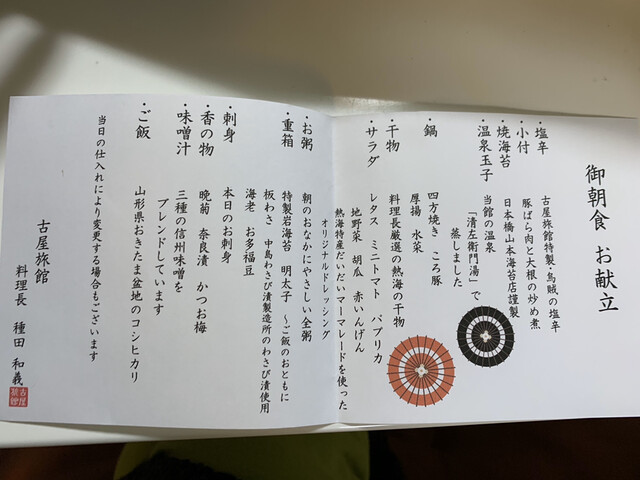 御朝食 お献立
・塩辛 古屋旅館特製・烏賊の塩辛
・小付 豚ばら肉と大根の炒め煮
・焼海苔 日本橋山本海苔店謹製
・温泉玉子 当館の温泉
「清左衛門湯」で
蒸しました
・鍋 四方焼き ころ豚
厚揚 水菜
・干物 料理長厳選の熱海の干物
・サラダ レタス ミニトマト パプリカ
地野菜 胡瓜 赤いんげん
熱海特産だいだいマーマレードを使った
オリジナルドレッシング
・お粥 朝のおなかにやさしい全粥
・重箱 特製岩海苔 明太子 〜ご飯のおともに
板わさ 中島わさび漬製造所のわさび漬使用
海老 お多福豆
・刺身 本日のお刺身
・香の物 晩菊 奈良漬 かつお梅
・味噌汁 三種の信州味噌を
ブレンドしています
・ご飯 山形県おきたま盆地のコシヒカリ
当日の仕入れにより変更する場合もございます
古屋旅館
料理長 種田 和義
古屋旅館